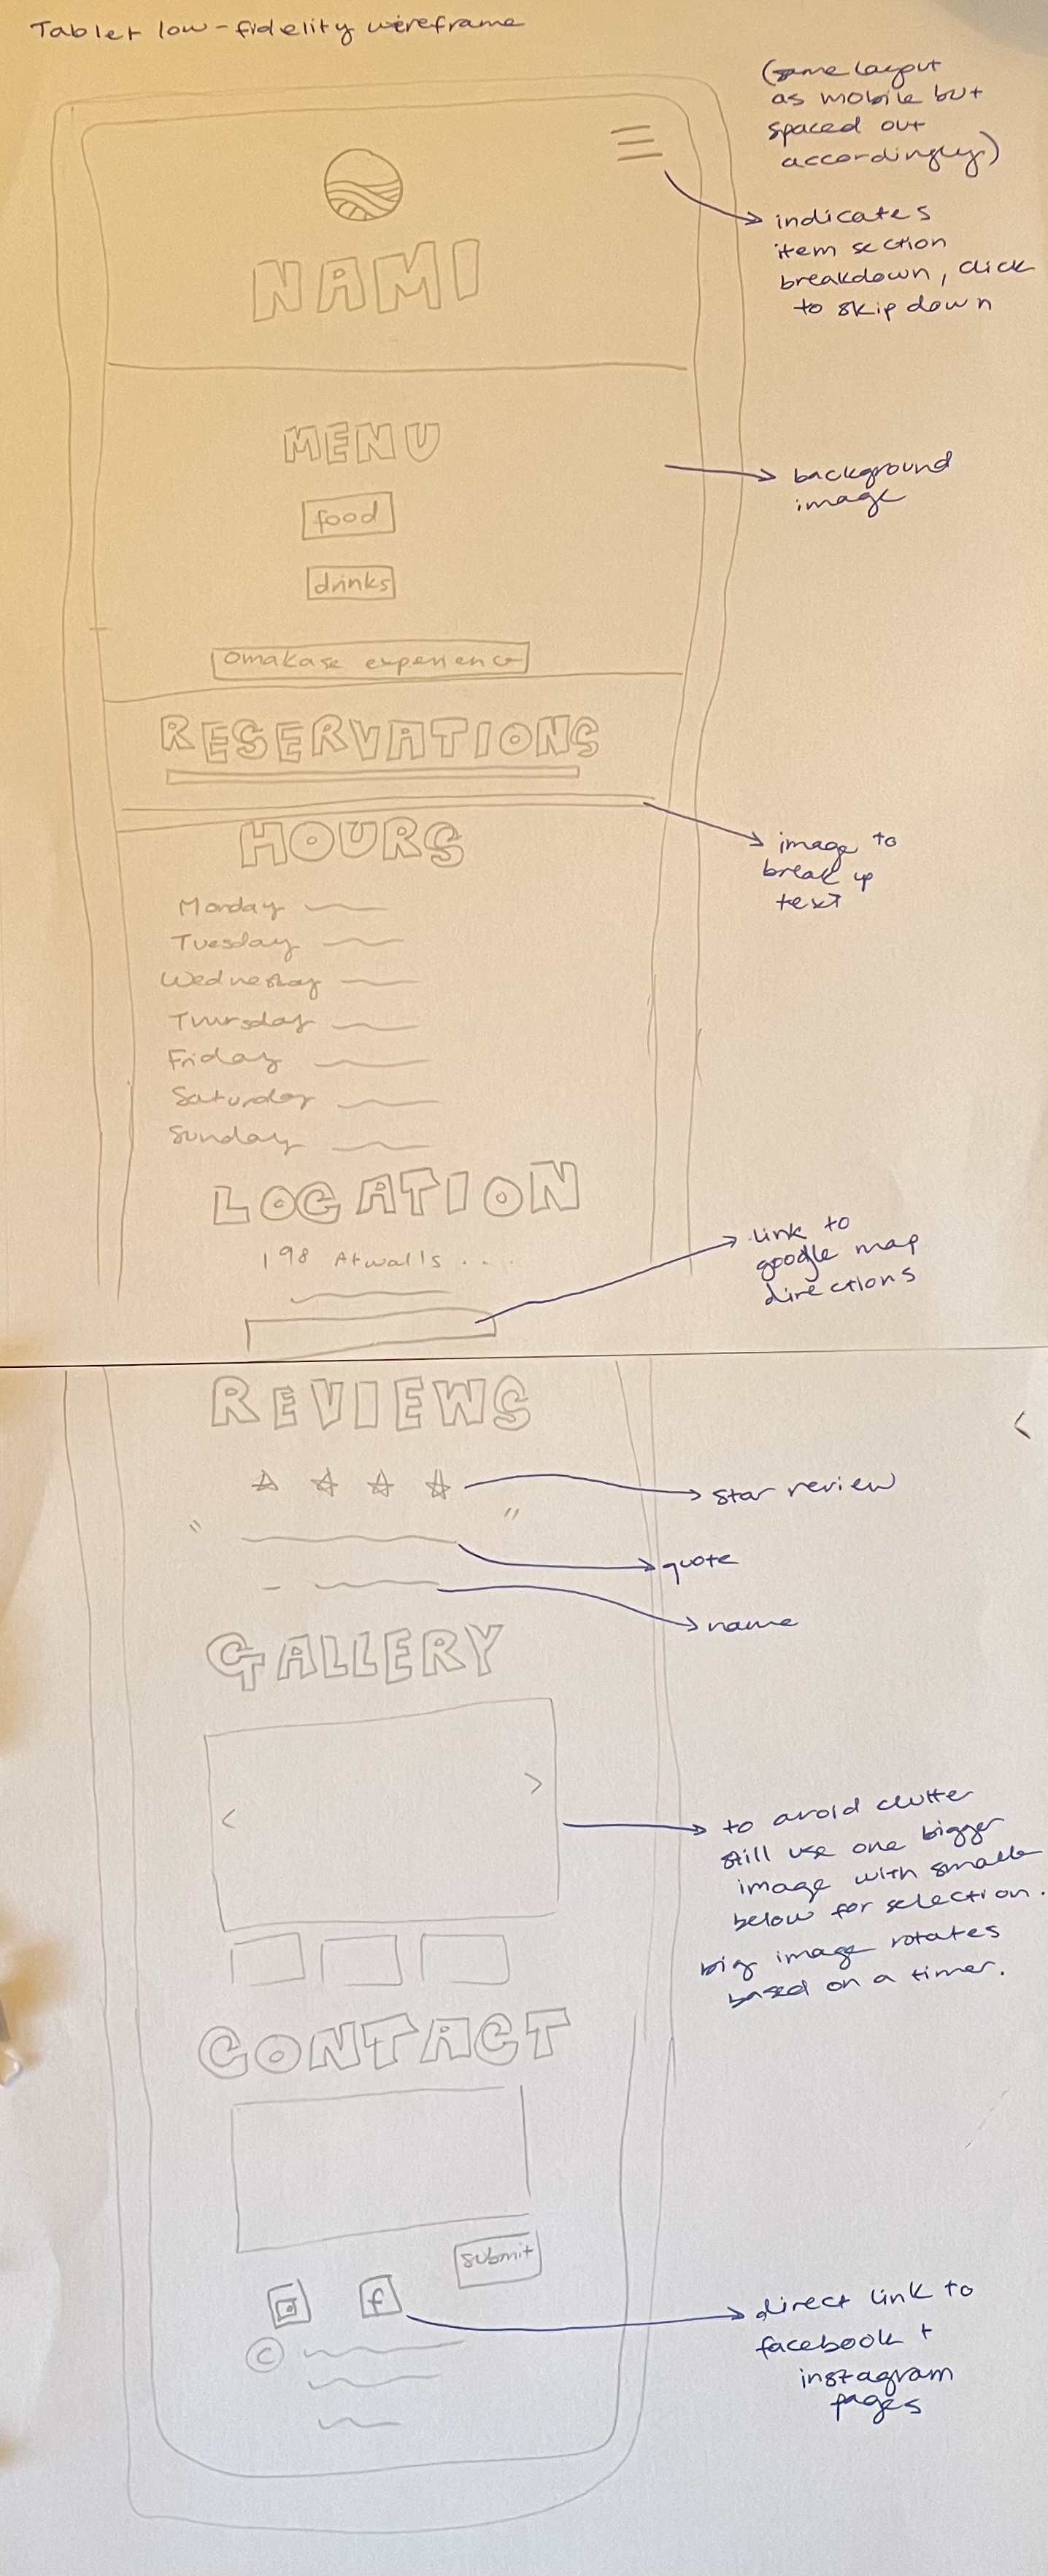 Tablet low-fidelity wireframe
(same layout
as mobile but
spaced out
accordingly)
indicates
item section
breakdown, click
to skip down
NAMI
MENU
background
image
food
drinks
Omakase experience
RESERVATIONS
HOURS
image to
break up
text
Monday
Tuesday
Wednesday
Thursday
Friday
Saturday
Sunday
LOCATION
198 Atwalls ...
link to
google map
directions
REVIEWS
star review
" "
quote
name
GALLERY
< >
to avoid clutter
still use one bigger
image with smaller
below for selection.
big image rotates
based on a timer.
CONTACT
submit
f
direct link to
facebook +
instagram
pages
©